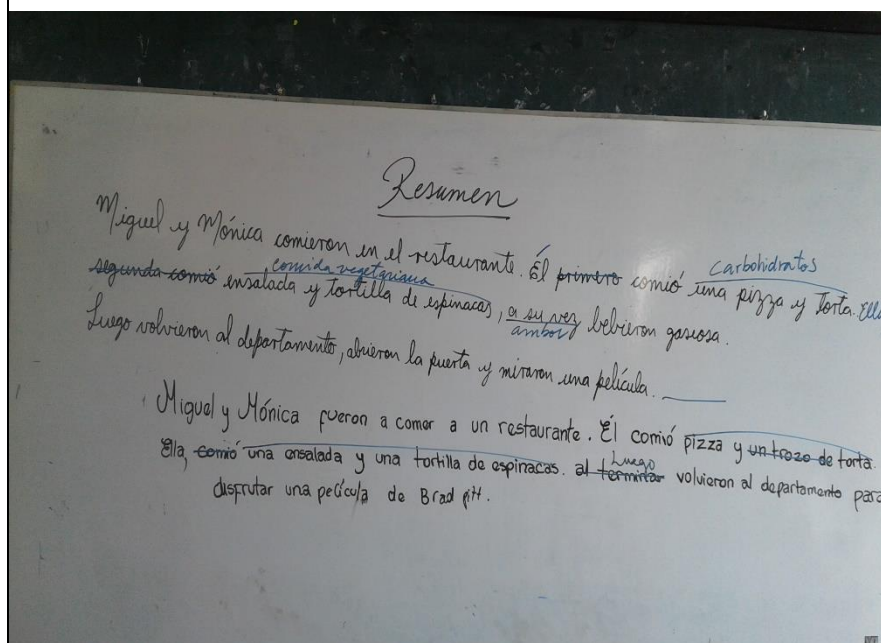 Resumen
Miguel y Mónica comieron en el restaurante. Él primero comió una pizza y torta. Ella
carbohidratos
segunda comió ensalada y tortilla de espinacas, a su vez bebieron gaseosa.
comida vegetariana
ambos
Luego volvieron al departamento, abrieron la puerta y miraron una película.
Miguel y Mónica fueron a comer a un restaurante. Él comió pizza y un trozo de torta.
Ella, comió una ensalada y una tortilla de espinacas. al terminar volvieron al departamento para
Luego
disfrutar una película de Brad pitt.